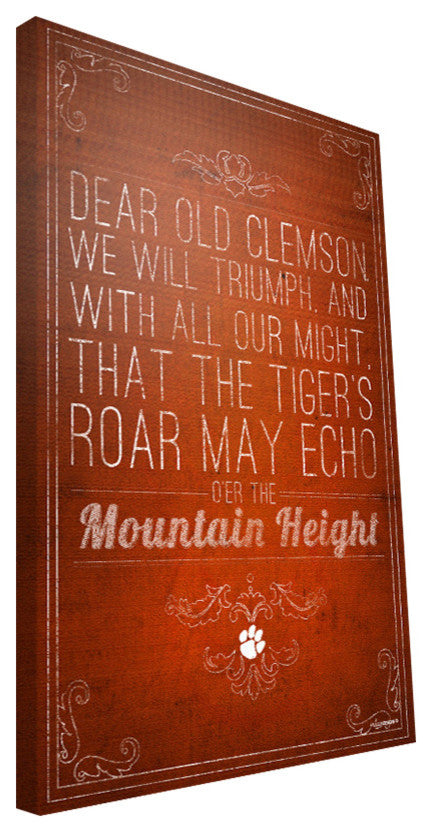 DEAR OLD CLEMSON,
WE WILL TRIUMPH. AND
WITH ALL OUR MIGHT,
THAT THE TIGER'S
ROAR MAY ECHO
O'ER THE
Mountain Height